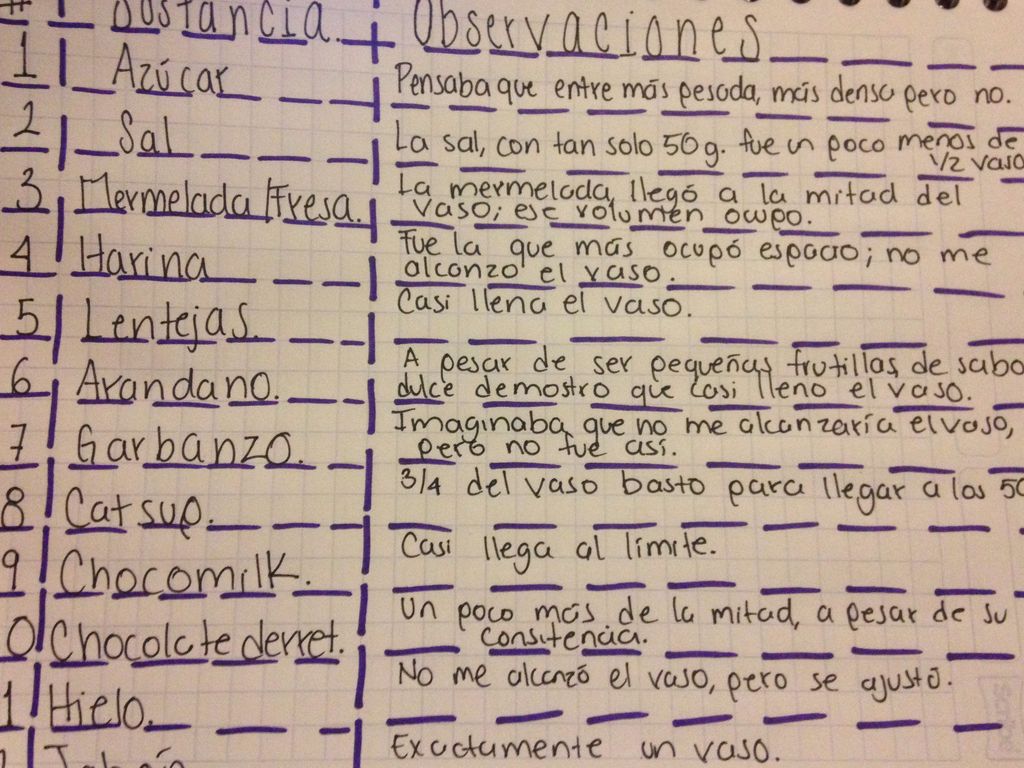 # Sustancia. Observaciones
1 Azúcar Pensaba que entre más pesada, más densa pero no.
2 Sal La sal, con tan solo 50 g. fue un poco menos de
1/2 vaso
3 Mermelada/Fresa. La mermelada llegó a la mitad del
vaso; ese volumten ocupo.
4 Harina Fue la que más ocupó espacio; no me
alcanzo el vaso.
5 Lentejas. Casi llena el vaso.
6 Arandano. A pesar de ser pequeñas frutillas de sabo
dulce demostro que casi lleno el vaso.
7 Garbanzo. Imaginaba que no me alcanzaría el vaso,
pero no fue así.
8 Catsup. 3/4 del vaso basto para llegar a los 50
9 Chocomilk. Casi llega al límite.
0 Chocolate derret. Un poco más de la mitad, a pesar de su
consitencia.
1 Hielo. No me alcanzó el vaso, pero se ajustó.
Jabón Exactamente un vaso.